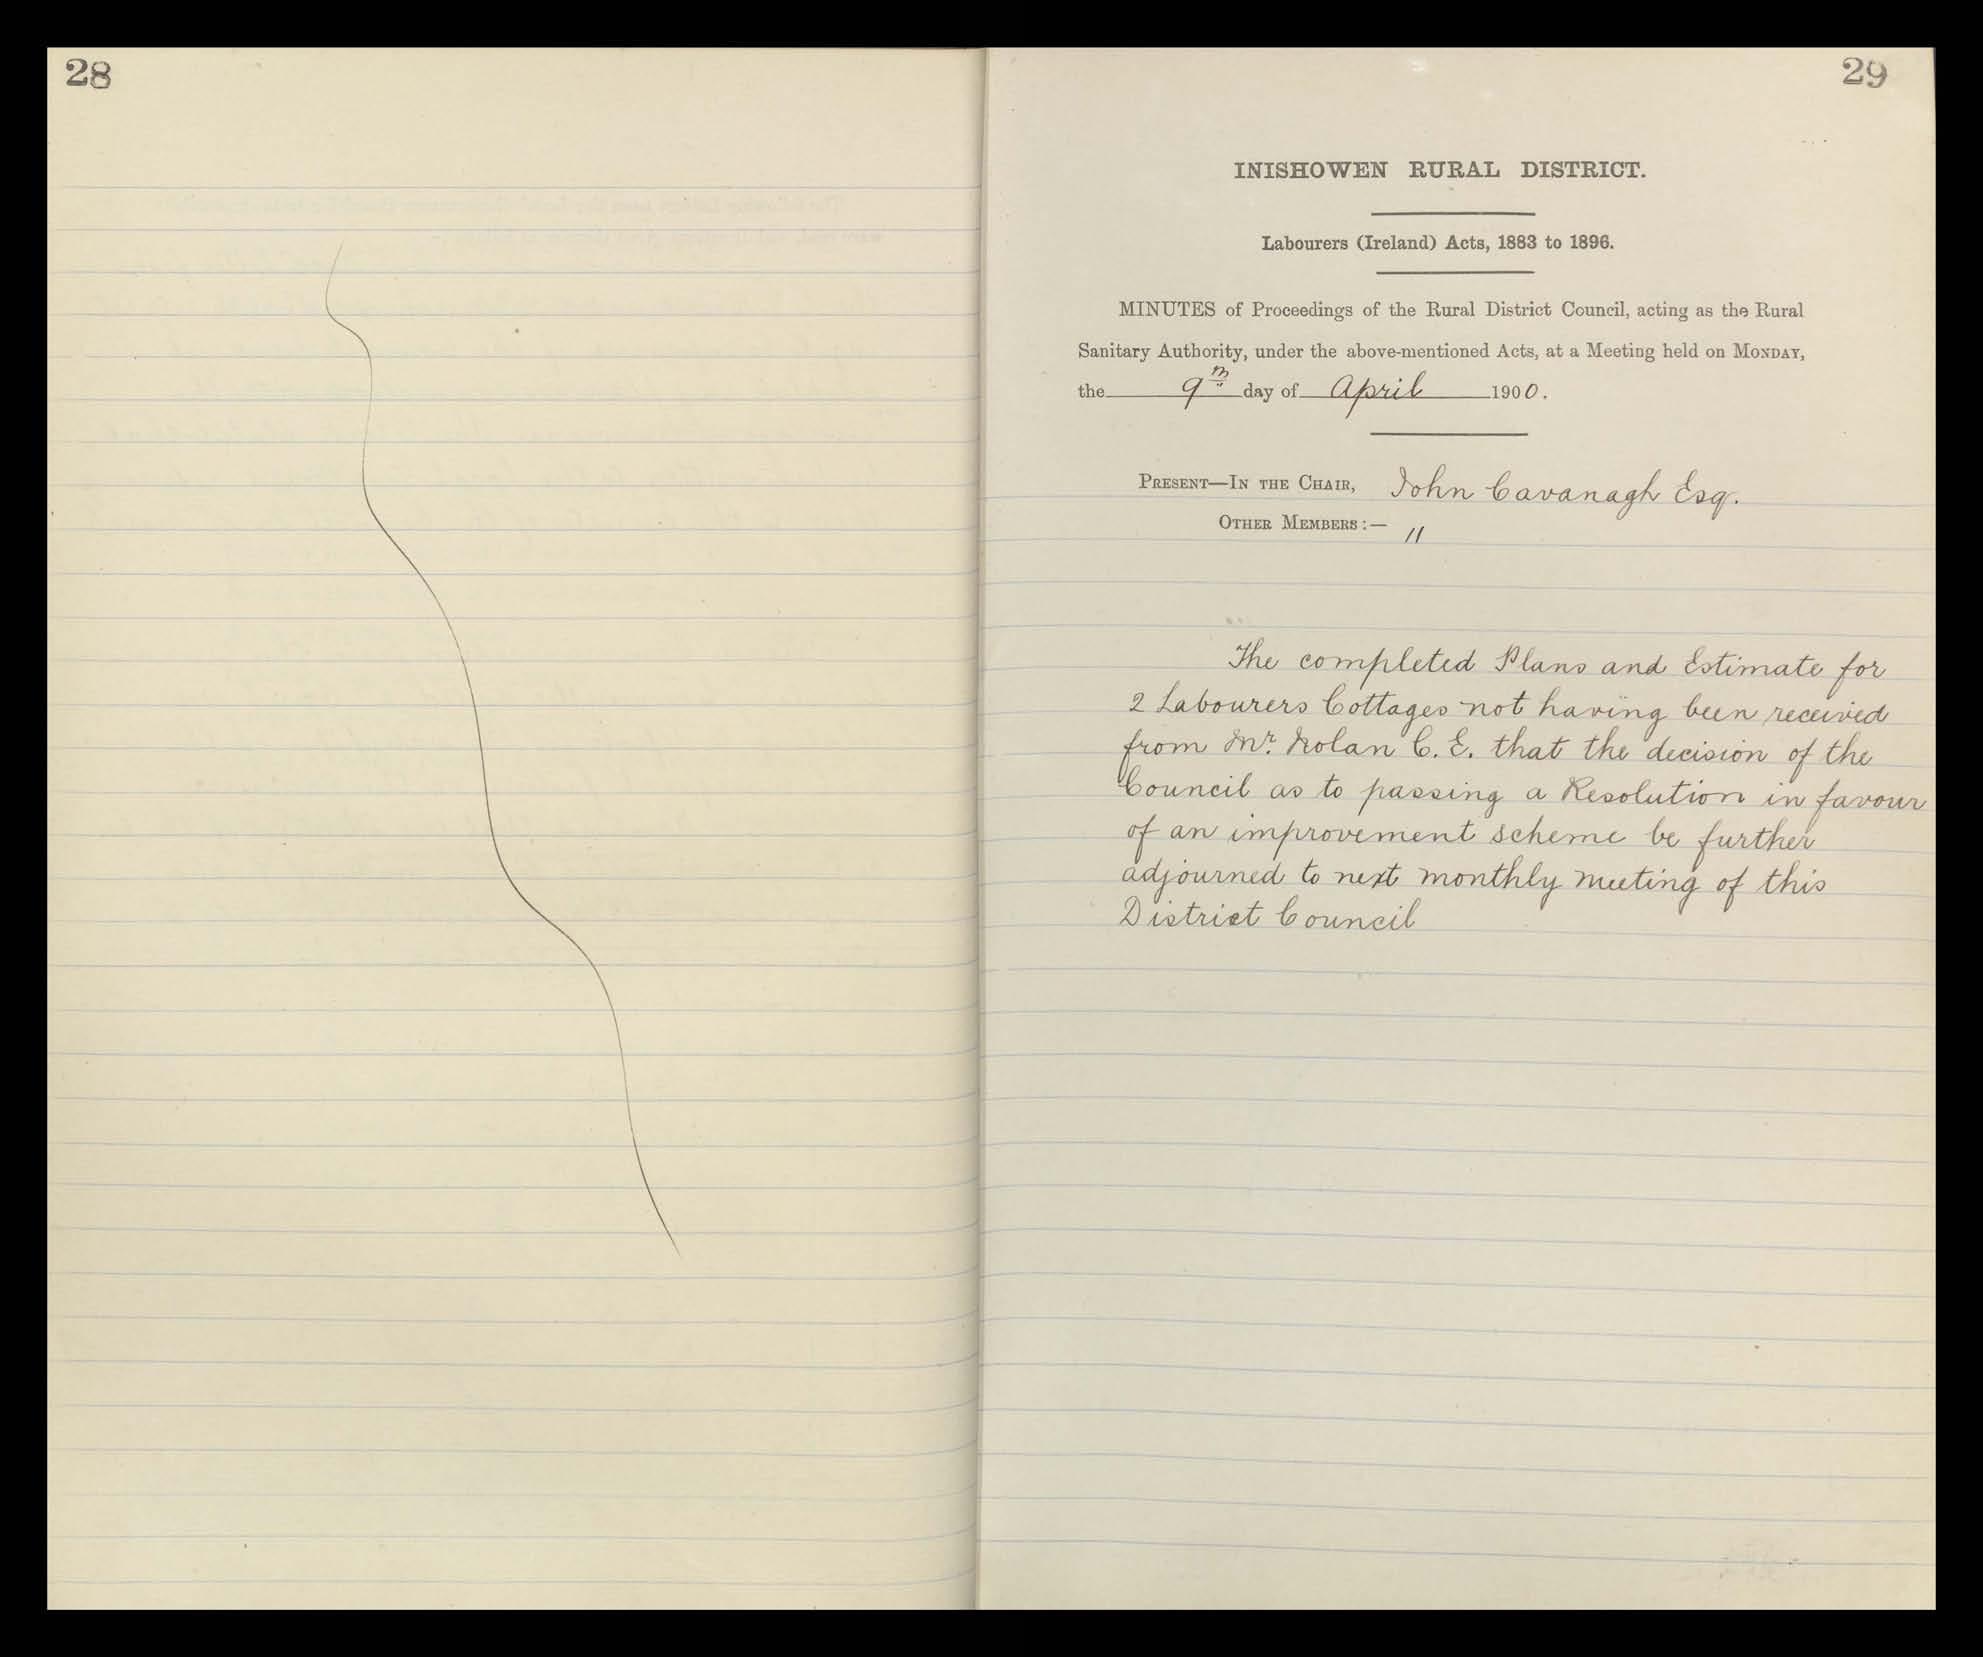 28
29
INISHOWEN RURAL DISTRICT.
Labourers (Ireland) Acts, 1883 to 1896.
MINUTES of Proceedings of the Rural District Council, acting as the Rural
Sanitary Authority, under the above-mentioned Acts, at a Meeting held on MONDAY,
the 9th day of April 1900.
PRESENT—IN THE CHAIR, John Cavanagh Esq.
OTHER MEMBERS:— "
The completed Plans and Estimate for
2 Labourers Cottages not having been received
from Mr. Nolan C. E. that the decision of the
Council as to passing a Resolution in favour
of an improvement scheme be further
adjourned to next monthly meeting of this
District Council